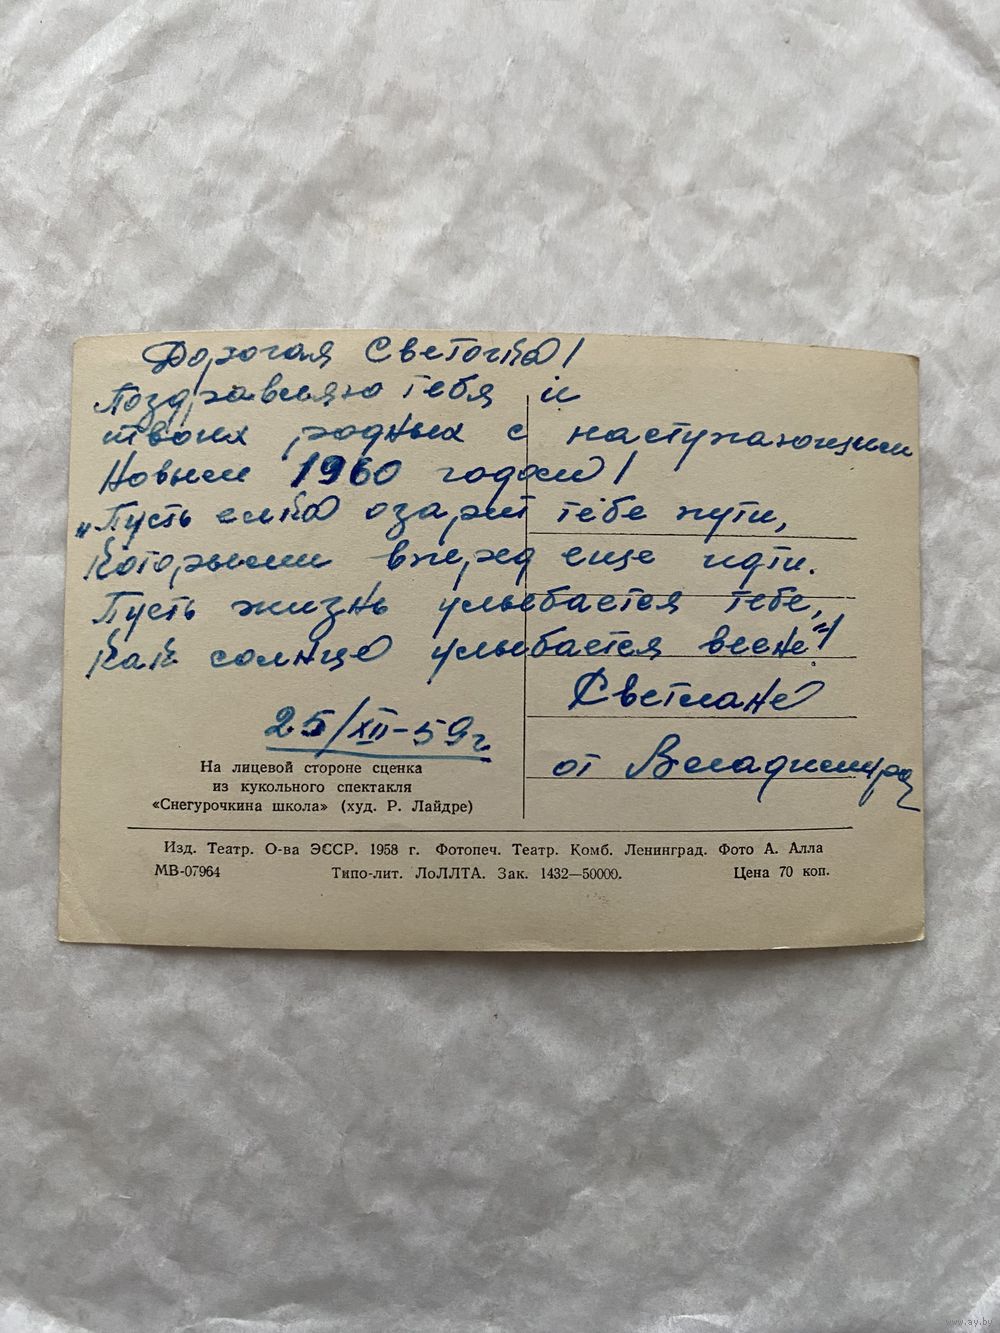 Дорогая Светочка!
Поздравляю тебя и
твоих родных с наступающим
Новым 1960 годом!
„Пусть елка озарит тебе пути,
Которыми вперед еще идти.
Пусть жизнь улыбается тебе,
Как солнце улыбается весне"!
Светлане
от Владимира
25/XII-59г.
На лицевой стороне сценка
из кукольного спектакля
«Снегурочкина школа» (худ. Р. Лайдре)
Изд. Театр. О-ва ЭССР. 1958 г. Фотопеч. Театр. Комб. Ленинград. Фото А. Алла
МВ-07964 Типо-лит. ЛоЛЛТА. Зак. 1432—50000. Цена 70 коп.
www.ay.by